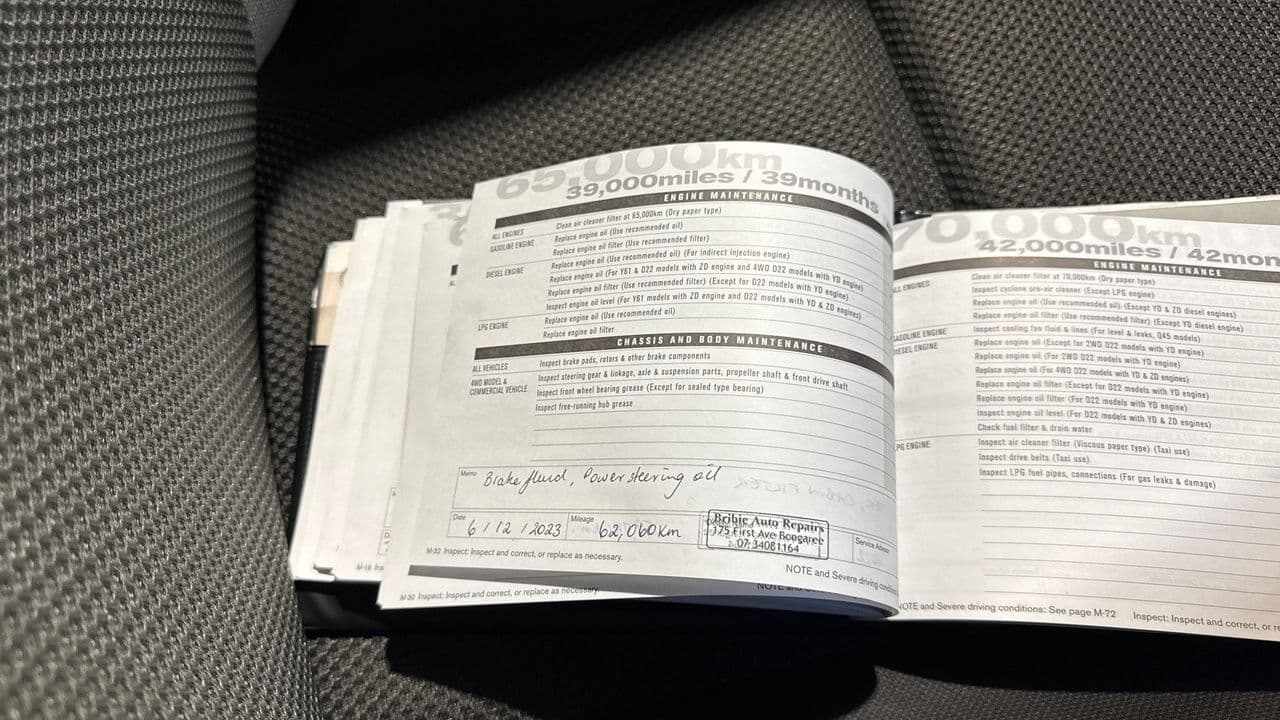 65,000km
39,000miles / 39months
ENGINE MAINTENANCE
ALL ENGINES Clean air cleaner filter at 65,000km (Dry paper type)
GASOLINE ENGINE Replace engine oil (Use recommended oil)
Replace engine oil filter (Use recommended filter)
DIESEL ENGINE Replace engine oil (Use recommended oil) (For indirect injection engine)
Replace engine oil (For Y61 & D22 models with ZD engine and 4WD D22 models with YD engine)
Replace engine oil filter (Use recommended filter) (Except for D22 models with YD engine)
Inspect engine oil level (For Y61 models with ZD engine and D22 models with YD & ZD engines)
LPG ENGINE Replace engine oil (Use recommended oil)
Replace engine oil filter
CHASSIS AND BODY MAINTENANCE
ALL VEHICLES Inspect brake pads, rotors & other brake components
4WD MODEL & COMMERCIAL VEHICLE Inspect steering gear & linkage, axle & suspension parts, propeller shaft & front drive shaft
Inspect front wheel bearing grease (Except for sealed type bearing)
Inspect free-running hub grease
Memo Brake fluid, Power steering oil
Date 6/12/2023 Mileage 62,060km
Bribie Auto Repairs
175 First Ave Bongaree
07 34081164
Service Advisor
M-32 Inspect: Inspect and correct, or replace as necessary.
NOTE and Severe driving condi
M-30 Inspect: Inspect and correct, or replace as necessary.
M-18 Ins
70,000km
42,000miles / 42mon
ENGINE MAINTENANCE
ALL ENGINES Clean air cleaner filter at 70,000km (Dry paper type)
Inspect cyclone pre-air cleaner (Except LPG engine)
Replace engine oil (Use recommended oil) (Except YD & ZD diesel engines)
Replace engine oil filter (Use recommended filter) (Except YD diesel engine)
GASOLINE ENGINE Inspect cooling fan fluid & lines (For level & leaks, Q45 models)
DIESEL ENGINE Replace engine oil (Except for 2WD D22 models with YD engine)
Replace engine oil (For 2WD D22 models with YD engine)
Replace engine oil (For 4WD D22 models with YD & ZD engines)
Replace engine oil filter (Except for D22 models with YD engine)
Replace engine oil filter (For D22 models with YD engine)
Inspect engine oil level (For D22 models with YD & ZD engines)
Check fuel filter & drain water
LPG ENGINE Inspect air cleaner filter (Viscous paper type) (Taxi use)
Inspect drive belts (Taxi use)
Inspect LPG fuel pipes, connections (For gas leaks & damage)
NOTE and Severe driving conditions: See page M-72 Inspect: Inspect and correct, or re